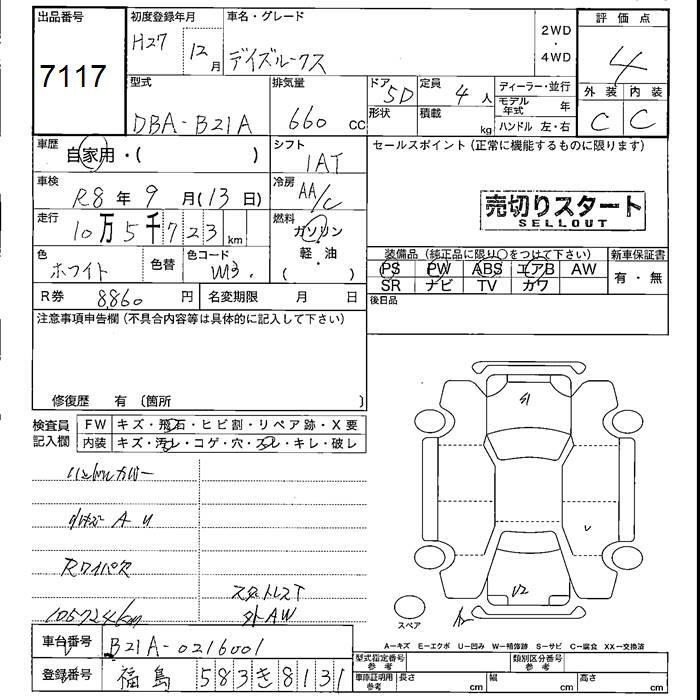 出品番号
7117
初度登録年月
H27 12月
車名・グレード
デイズルークス
2WD
・
4WD
評価点
4
外装 内装
C C
型式
DBA-B21A
排気量
660 cc
ドア
5D
形状
定員
4人
積載
kg
ディーラー・並行
モデル年式 年
ハンドル 左・右
車歴
自家用・( )
シフト
IAT
セールスポイント(正常に機能するものに限ります)
車検
R8年9月(13日)
冷房
AA/C
売切りスタート
SELLOUT
走行
10万5千723km
燃料
ガソリン
・
軽・油
( )
色
ホワイト
色替
色コード
装備品(純正品に限り○をつけて下さい)
PS PW ABS エアB AW
SR ナビ TV カワ
新車保証書
有・無
R券 8860円
名変期限 月 日
後日品
注意事項申告欄(不具合内容等は具体的に記入して下さい)
修復歴 有(箇所 )
検査員
記入欄
FW キズ・飛石・ヒビ割・リペア跡・X要
内装 キズ・汚レ・コゲ・穴・スレ・キレ・破レ
ハンドルカバー
A U
Rワイパ欠
スタットレスT
105724km
外AW
S1
U2
スペア
A－キズ E－エクボ U－凹み W－補修跡 S－サビ C－腐食 XX－交換済
車台番号 B21A-0216001
登録番号 福島 583き8131
型式指定番号
参考
類別区分番号
参考
車庫証明用
参考
長さ cm 幅 cm 高さ cm